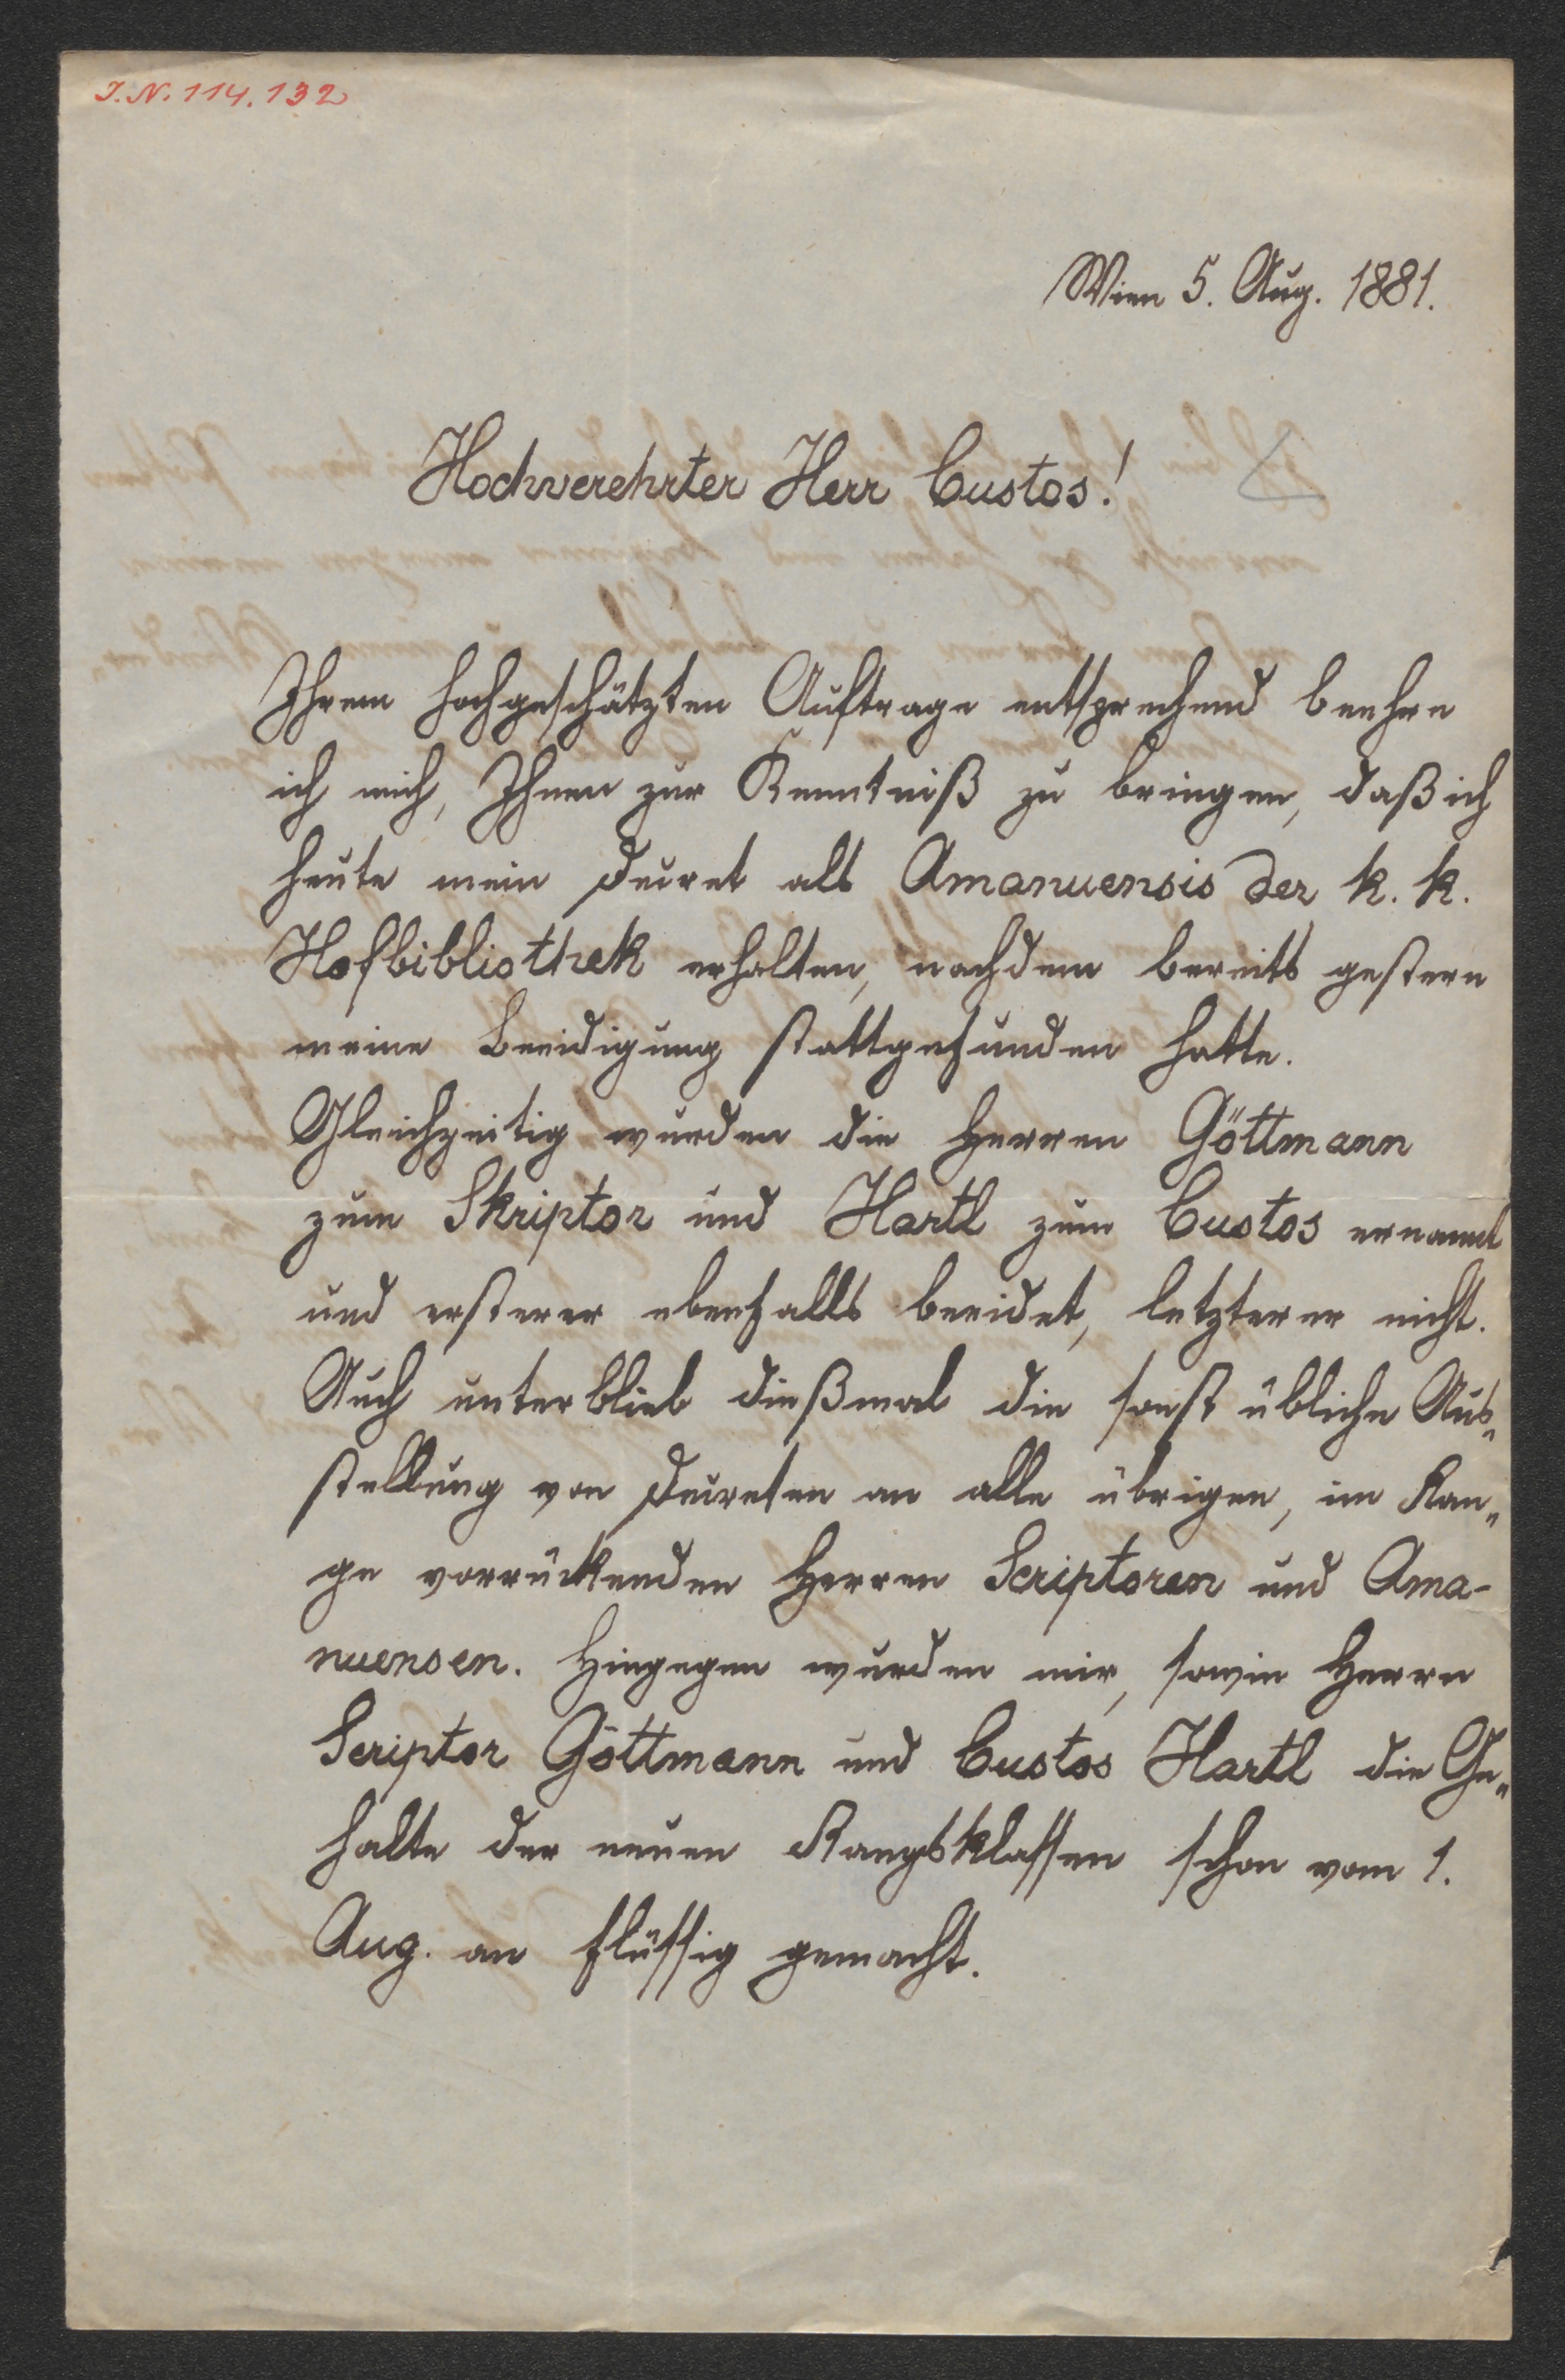 J.N. 114.132
Wien 5. Aug. 1881.
Hochverehrter Herr Custos!
Ihrem hochgeschätzten Auftrage entsprechend beehre
ich mich, Ihnen zur Kenntniß zu bringen, daß ich
heute mein Decret als Amanuensis der k. k.
Hofbibliothek erhalten, nachdem bereits gestern
meine Beeidigung stattgefunden hatte.
Gleichzeitig wurden die Herren Göttmann
zum Skriptor und Hartl zum Custos ernannt
und ersterer ebenfalls beeidet, letzterer nicht.
Auch unterblieb dießmal die sonst übliche Aus„
stellung von Decreten an alle übrigen, im Ran„
ge vorrückenden Herren Scriptoren und Ama-
nuensen. Hingegen wurden mir, sowie Herrn
Scriptor Göttmann und Custos Hartl die Ge„
halte der neuen Rangsklassen schon vom 1.
Aug. an flüssig gemacht.